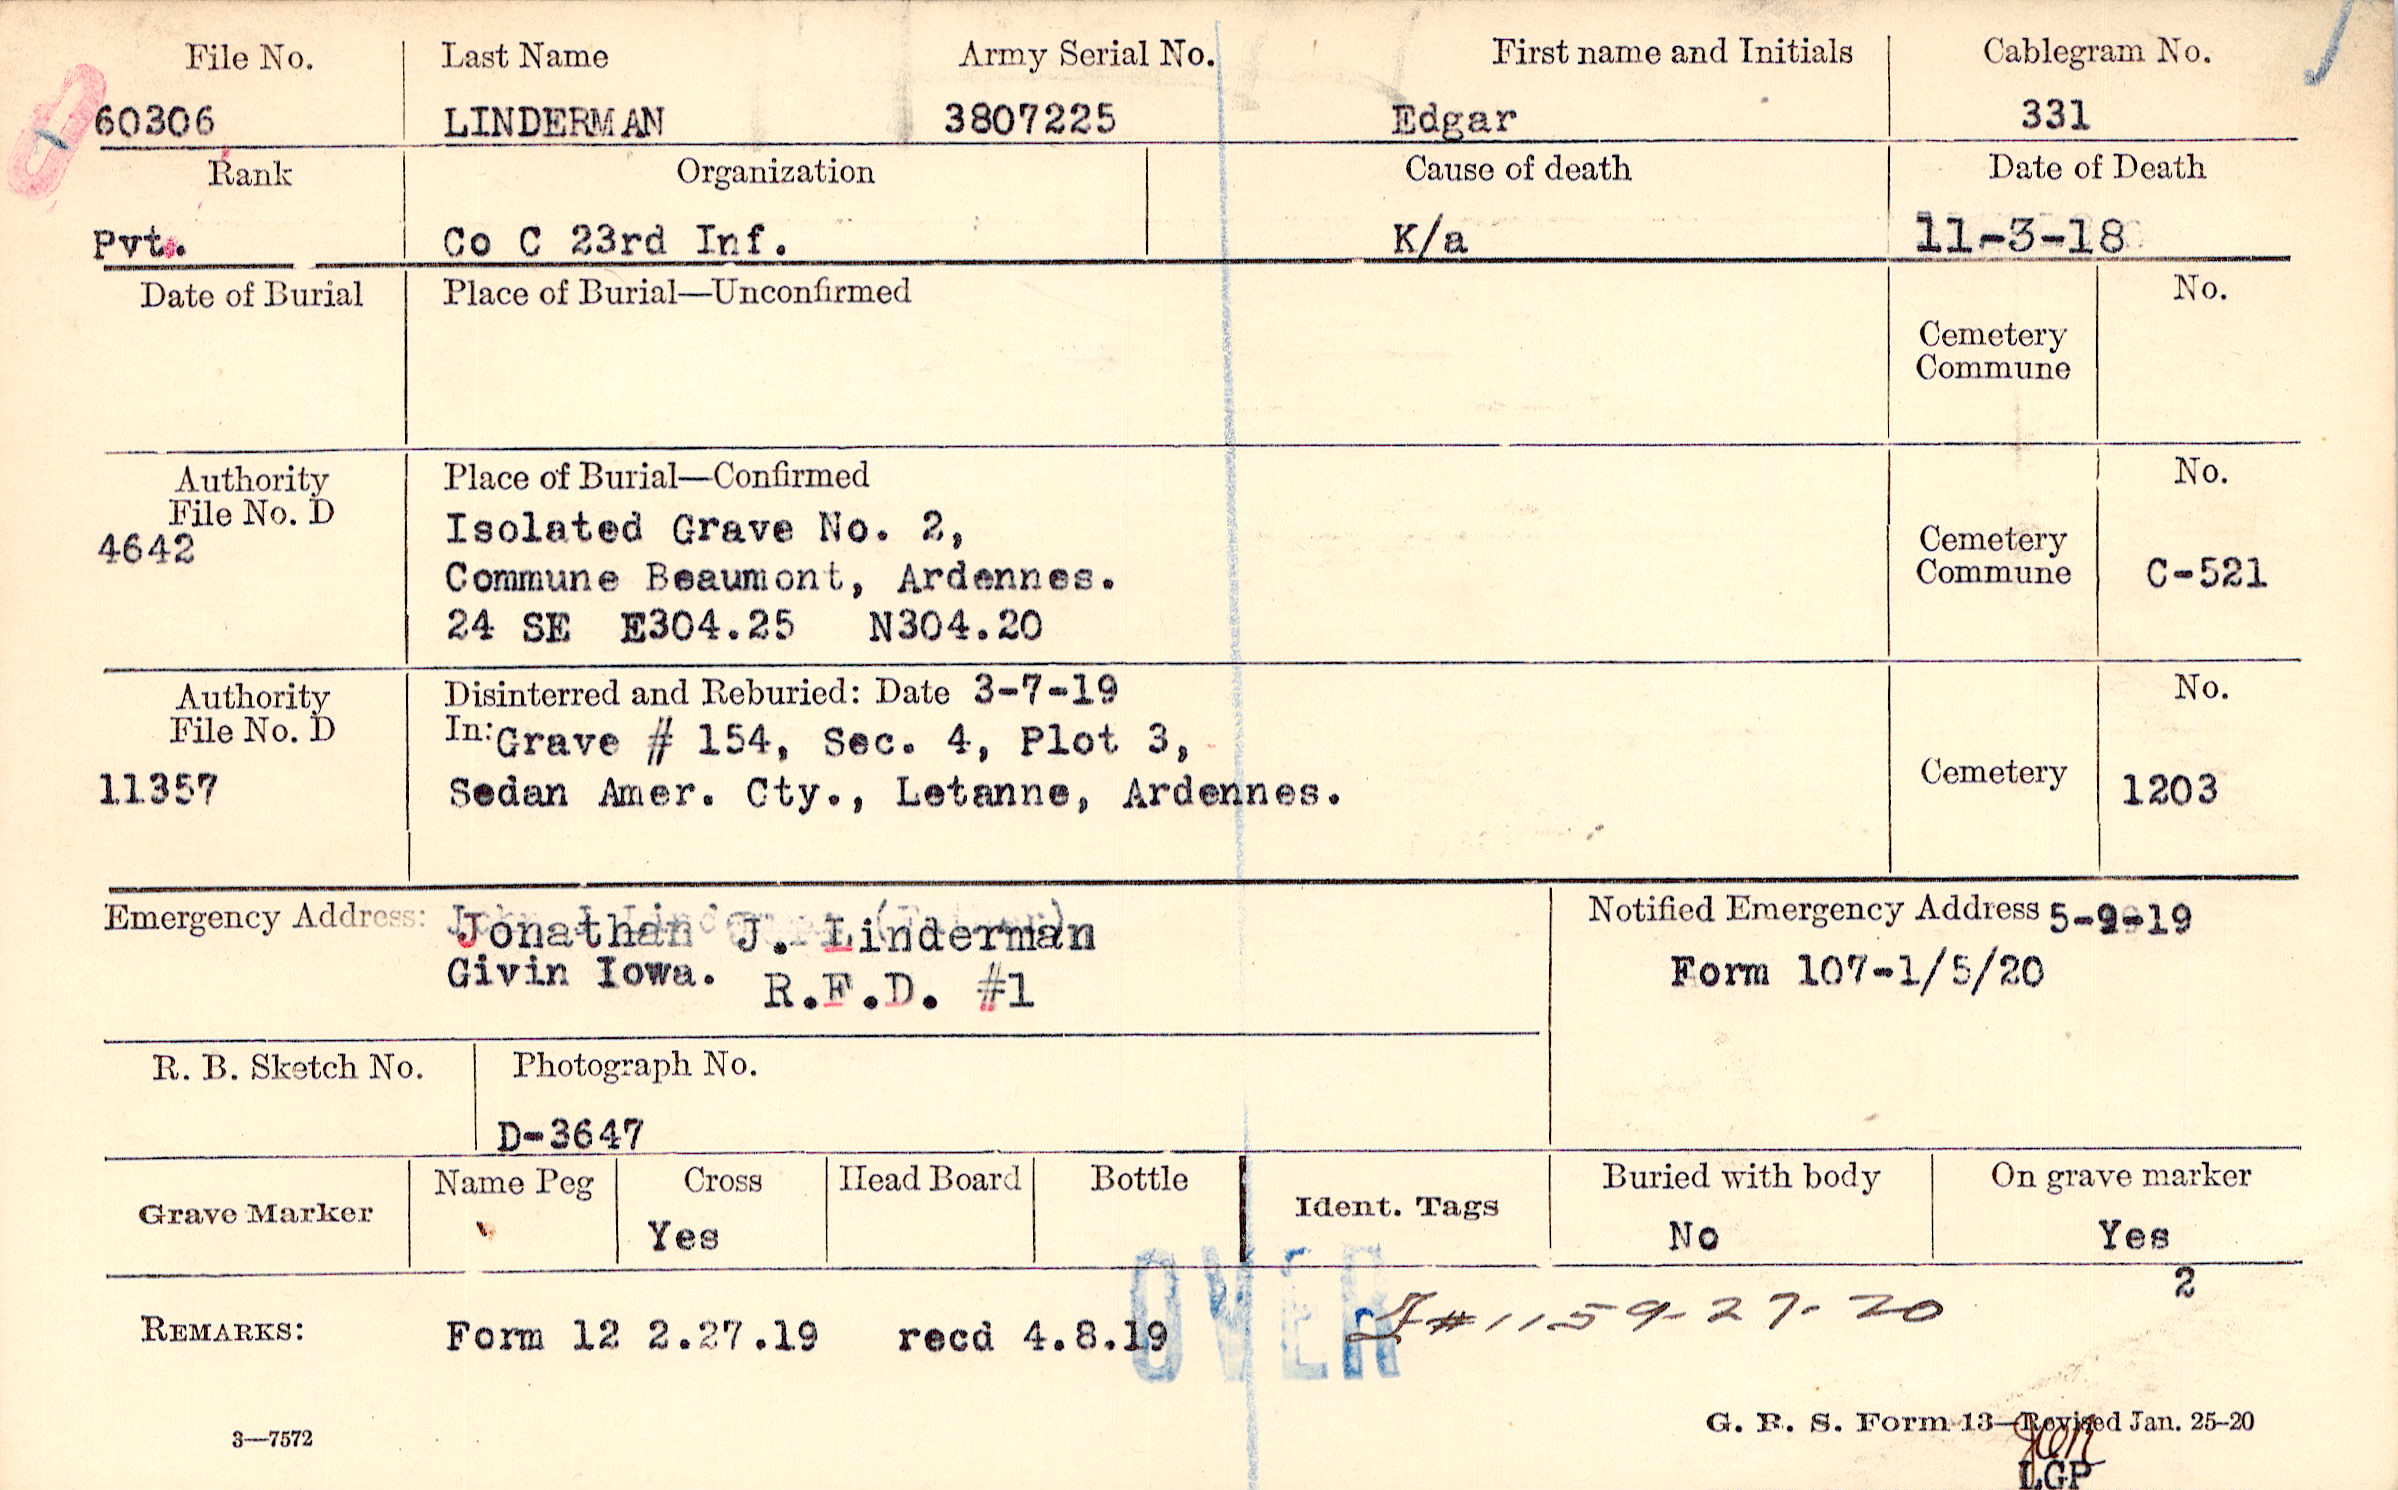 File No. Last Name Army Serial No. First name and Initials Cablegram No.
60306 LINDERMAN 3807225 Edgar 331
Rank Organization Cause of death Date of Death
Pvt. Co C 23rd Inf. K/a 11-3-18
Date of Burial Place of Burial—Unconfirmed No.
Cemetery
Commune
Authority Place of Burial—Confirmed No.
File No. D
4642 Isolated Grave No. 2,
Commune Beaumont, Ardennes. Cemetery Commune C-521
24 SE E304.25 N304.20
Authority Disinterred and Reburied: Date 3-7-19 No.
File No. D In: Grave # 154, Sec. 4, Plot 3,
11357 Sedan Amer. Cty., Letanne, Ardennes. Cemetery 1203
Emergency Address: Jonathan J. Linderman Notified Emergency Address 5-9-19
Givin Iowa. R.F.D. #1 Form 107-1/5/20
R. B. Sketch No. Photograph No.
D-3647
Grave Marker Name Peg Cross Head Board Bottle Ident. Tags Buried with body On grave marker
Yes No Yes
2
REMARKS: Form 12 2.27.19 recd 4.8.19 OVER #1159-27-20
3—7572 G. R. S. Form 13—Revised Jan. 25-20
LGP